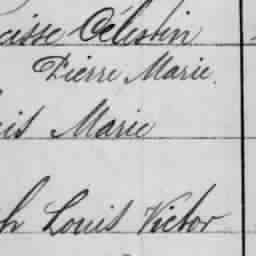 cisse Célestin
Pierre Marie.
is Marie
h Louis Victor